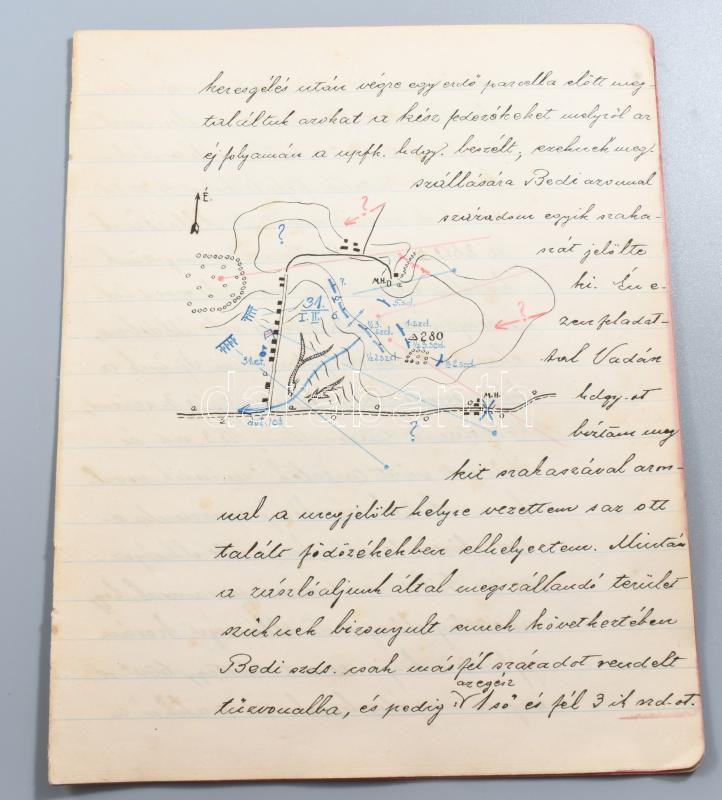 keresgélés után végre egy erdő parcella előtt meg-
találtuk azokat a kész fedezékeket melyről az
éj folyamán a upfk. hdgy. beszélt, ezeknek meg
szállására Bedi azonnal
századom egyik szaka-
szát jelölte
ki. Én e-
zen feladat-
tal Vadán
hdgy-ot
bíztam meg
kit szakaszával azon-
nal a megjelölt helyre vezettem s az ott
talált födözékekben elhelyeztem. Mintán
a zászlóaljunk által megszállandó terület
szűknek bizonyult ennek következtében
Bedi szds. csak másfél századot rendelt
az egész
tűzvonalba, és pedig 1ső és fél 3 ik szd-ot.
É.
?
?
?
?
31.
I. II.
M.H.
5.szd.
1.szd.
½3.szd.
½2.szd.
280
½2.szd.
M.H.
darabanth